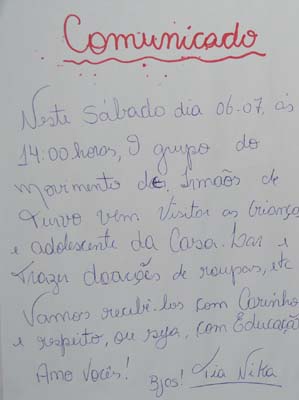 Comunicado
Neste Sábado dia 06.07, às
14:00 horas, O grupo do
movimento dos Irmaõs de
Turvo vem Visitar as Crianças
e adolescente da Casa-Lar e
Trazer doações de roupas, etc
Vamos recebê-los com Carinho
e respeito, ou seja, com Educação
Amo Vocês! Bjos! Tia Nika